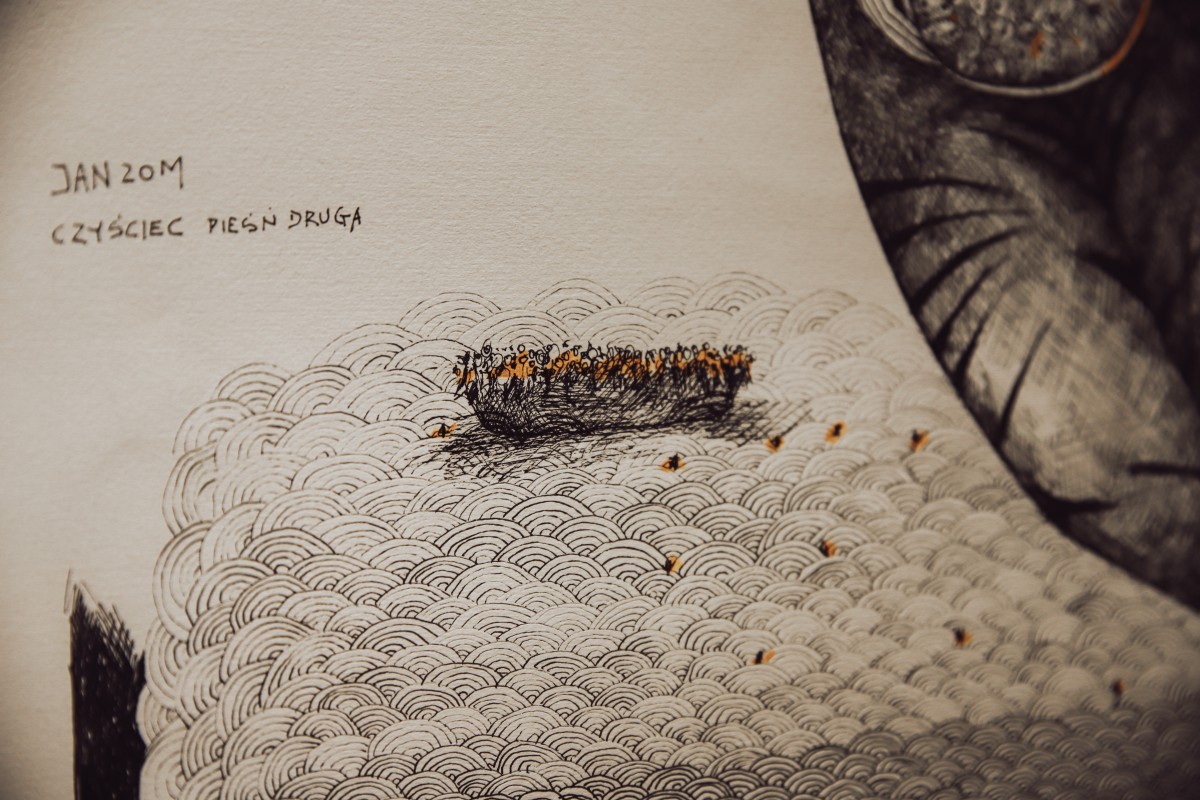 JAN ZOM
CZYŚCIEC PIEŚŃ DRUGA